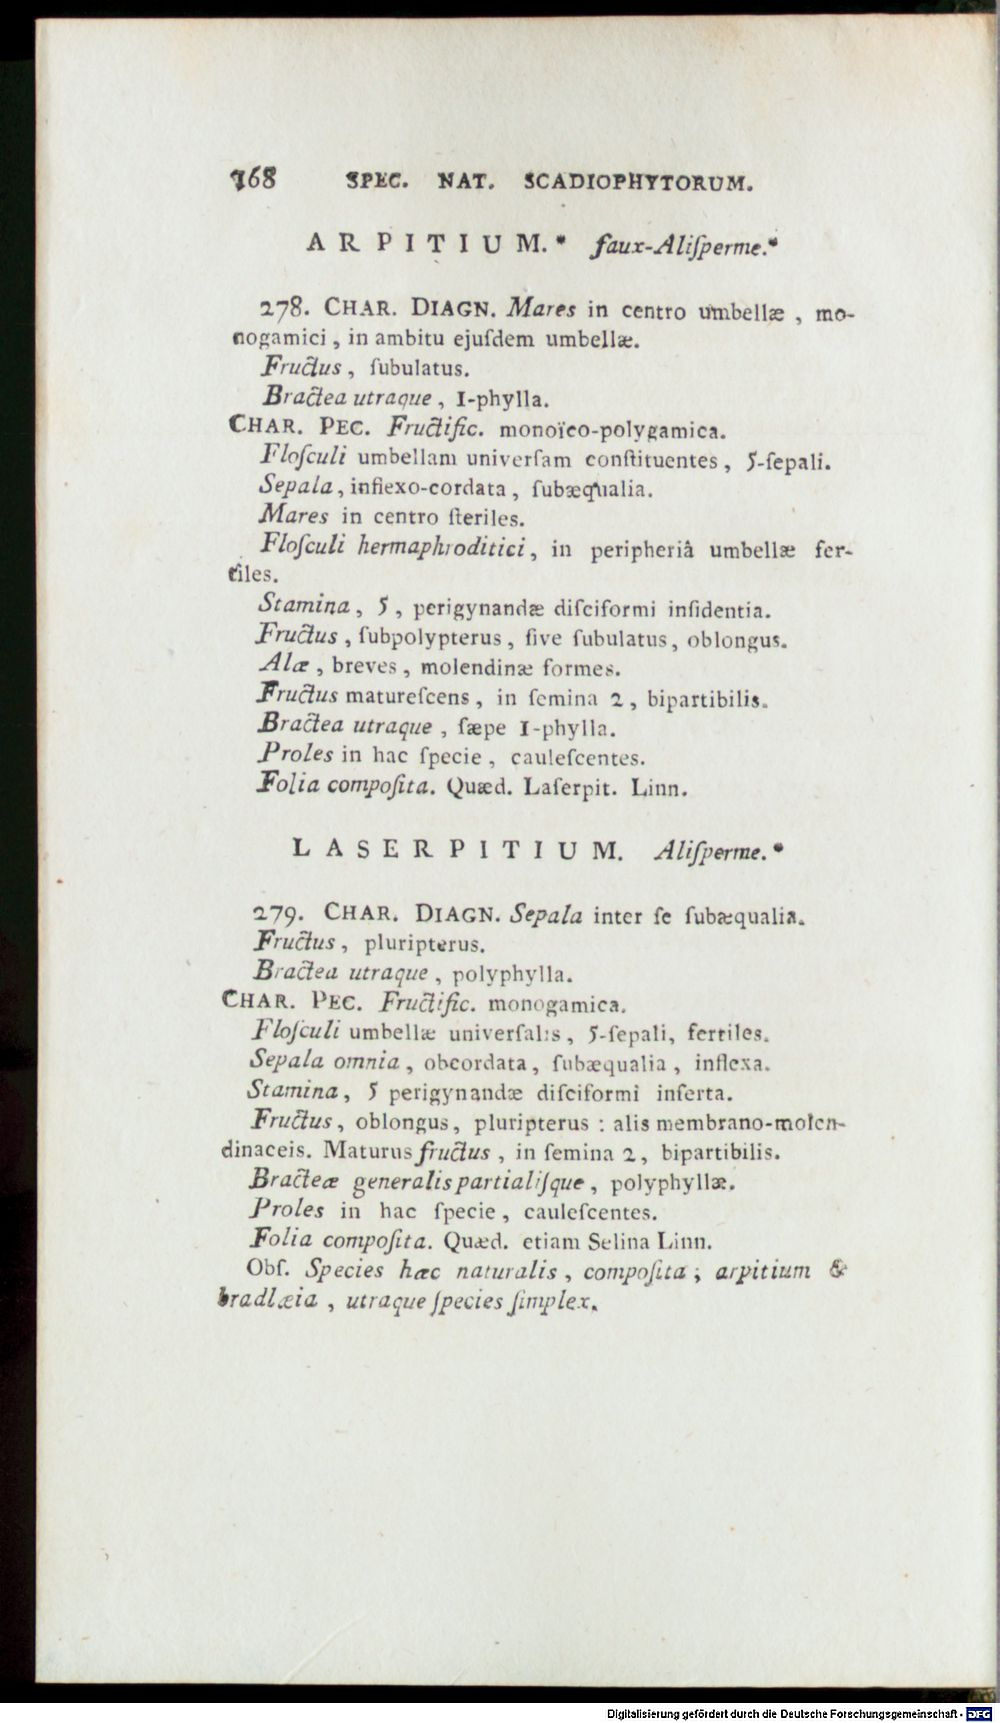 168 SPEC. NAT. SCADIOPHYTORUM.
ARPITIUM.* faux-Aliſperme.*
278. CHAR. DIAGN. Mares in centro umbellæ, mo-
nogamici, in ambitu ejuſdem umbellæ.
Fructus, ſubulatus.
Bractea utraque, 1-phylla.
CHAR. PEC. Fructific. monoïco-polygamica.
Floſculi umbellam univerſam conſtituentes, 5-ſepali.
Sepala, inflexo-cordata, ſubæqualia.
Mares in centro ſteriles.
Floſculi hermaphroditici, in peripheriâ umbellæ fer-
tiles.
Stamina, 5, perigynandæ diſciformi inſidentia.
Fructus, ſubpolypterus, ſive ſubulatus, oblongus.
Alæ, breves, molendinæ formes.
Fructus matureſcens, in ſemina 2, bipartibilis.
Bractea utraque, ſæpe 1-phylla.
Proles in hac ſpecie, cauleſcentes.
Folia compoſita. Quæd. Laſerpit. Linn.
LASERPITIUM. Aliſperme.*
279. CHAR. DIAGN. Sepala inter ſe ſubæqualia.
Fructus, pluripterus.
Bractea utraque, polyphylla.
CHAR. PEC. Fructific. monogamica.
Floſculi umbellæ univerſalis, 5-ſepali, fertiles.
Sepala omnia, obcordata, ſubæqualia, inflexa.
Stamina, 5 perigynandæ diſciformi inſerta.
Fructus, oblongus, pluripterus : alis membrano-molen-
dinaceis. Maturus fructus, in ſemina 2, bipartibilis.
Bracteæ generalis partialiſque, polyphyllæ.
Proles in hac ſpecie, cauleſcentes.
Folia compoſita. Quæd. etiam Selina Linn.
Obſ. Species hæc naturalis, compoſita ; arpitium &
bradlæia, utraque ſpecies ſimplex.
Digitalisierung gefördert durch die Deutsche Forschungsgemeinschaft - DFG